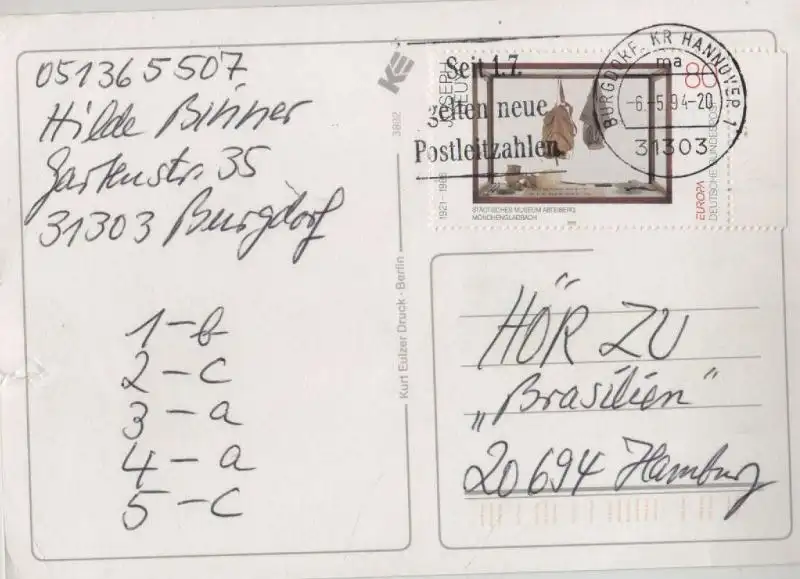 051365507
Hilde Binner
Gartenstr. 35
31303 Burgdorf
1-b
2-c
3-a
4-a
5-c
KE
3892
Kurt Eulzer Druck · Berlin
Seit 1.7.
gelten neue
Postleitzahlen
JOSEPH
1921-1986
STÄDTISCHES MUSEUM ABTEIBERG
MÖNCHENGLADBACH
80
EUROPA
DEUTSCHE BUNDESPOST
BURGDORF, KR HANNOVER 1
ma
-6.-5.94-20
31303
HÖR ZU
„Brasilien“
20694 Hamburg